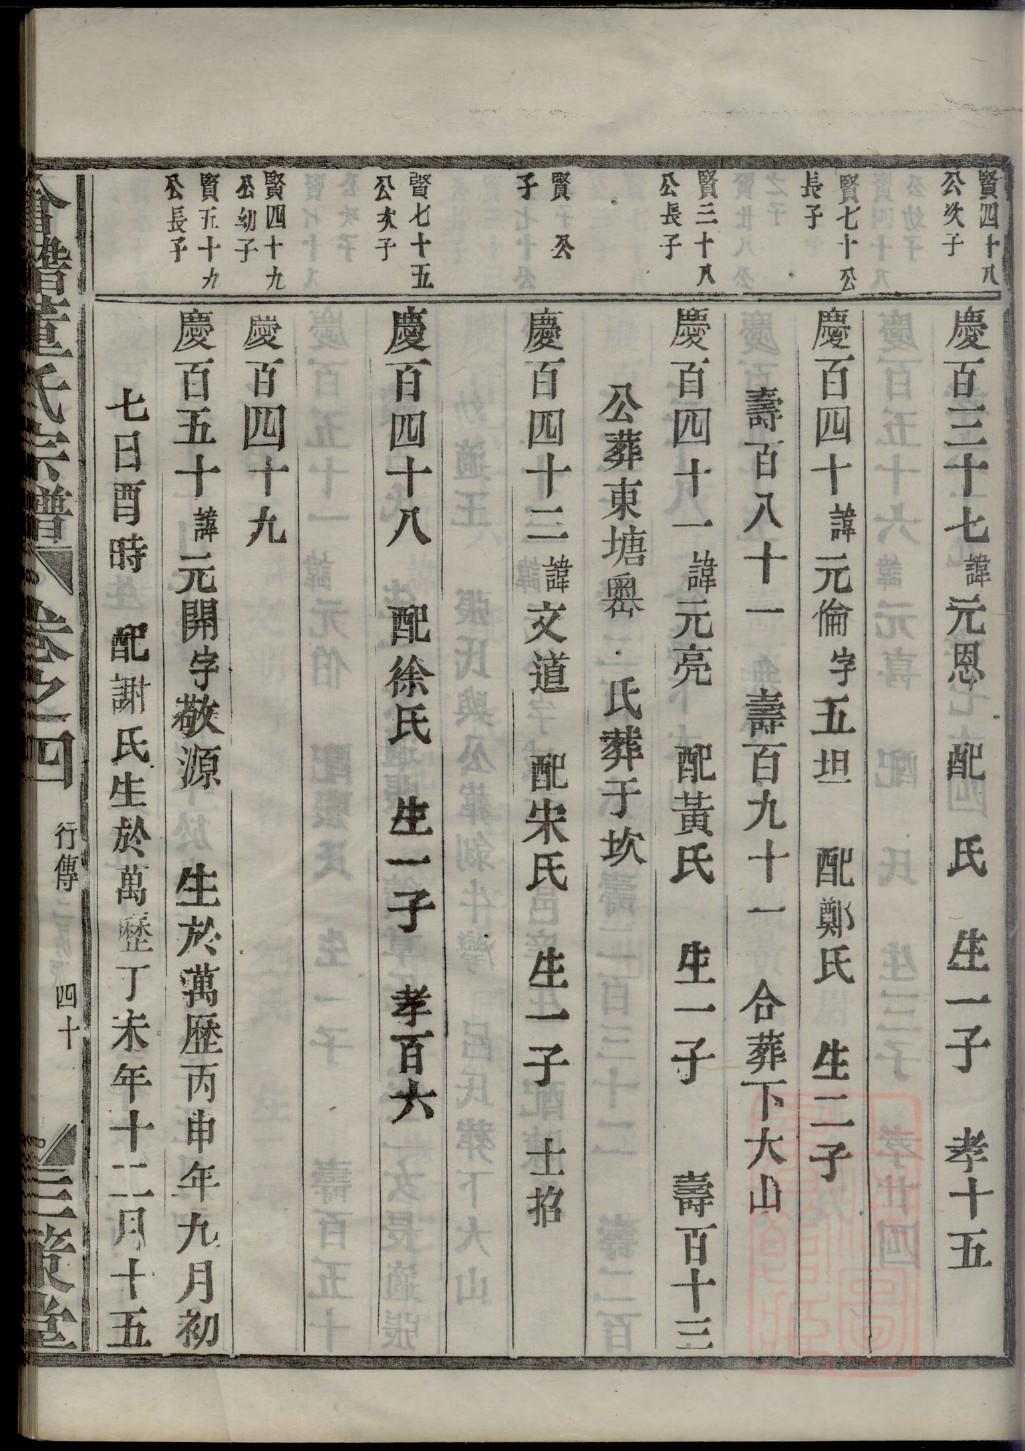 賢四十八
公次子
慶百三十七諱元恩 配 氏 生一子 孝十五
賢七十公
長子
慶百四十諱元倫字五坦 配鄭氏 生二子
壽百八十一 壽百九十一 合葬下大山
賢三十八
公長子
慶百四十一諱元亮 配黃氏 生一子 壽百十三
公葬東塘㠗 氏葬于坎
賢 公
子
慶百四十三諱文道 配宋氏 生一子 士招
賢七十五
公次子
慶百四十八 配徐氏 生一子 孝百六
賢四十九
公幼子
慶百四十九
賢五十九
公長子
慶百五十諱元開字敬源 生於萬歷丙申年九月初
七日酉時 配謝氏生於萬歷丁未年十二月十五
董氏宗譜 卷之四 行傳 四十 三策堂